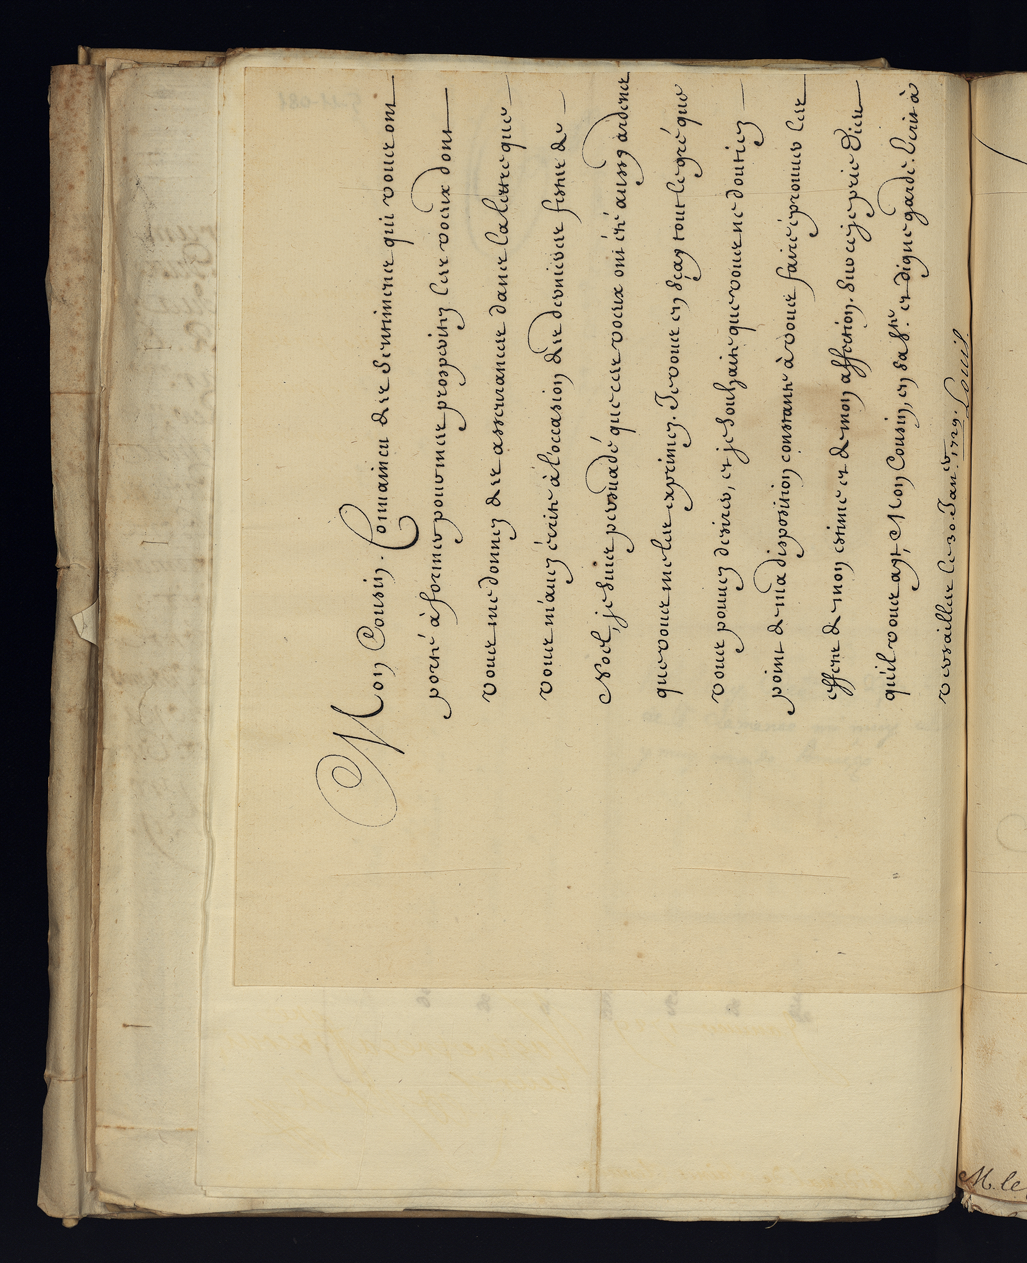 Mon Cousin. Convaincu des sentimens qui vous ont
porté à former pour mes prosperitez les voeux dont
vous me donnez des asseurances dans la lettre que
vous m'auez écrite à l'occasion des dernieres festes de
Noel, je suis persuadé que ces voeux ont été aussy ardens
que vous me les exprimez. Je vous en sçay tout le gré que
vous pouuez desirer, et je souhaite que vous ne doutiez
point de ma disposition constante à vous faire éprouuer les
effets de mon estime et de mon affection. Sur ce je prie Dieu
qu'il vous ayt, Mon Cousin, en sa ste. et digne garde. Ecrit à
Versailles le 30 Janer. 1729. Louis
M. le